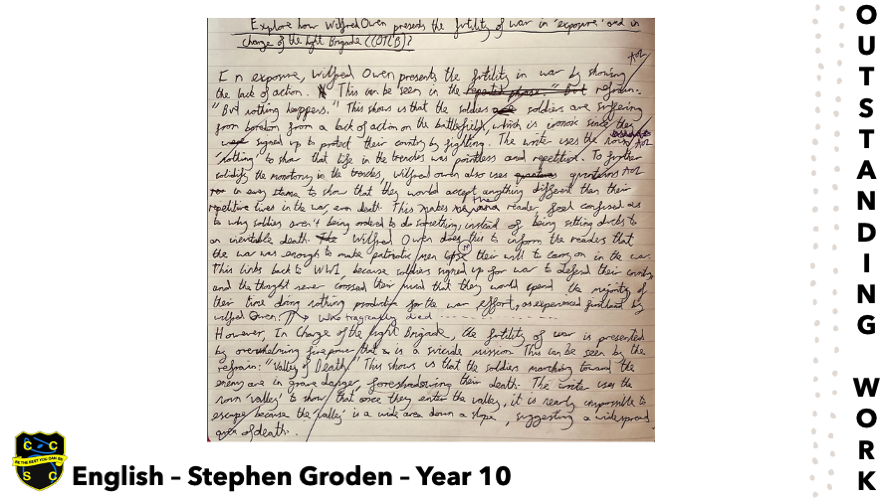 Explore how Wilfred Owen presents the futility of war in 'exposure' and in
charge of the light Brigade (COTLB)?
In exposure, Wilfred Owen presents the futility in war by showing
the lack of action. This can be seen in the repeated phrase." But refrain:
"But nothing happens." This shows us that the soldiers are soldiers are suffering
from boredom from a lack of action on the battlefield, which is ironic since they
were signed up to protect their country by fighting. The writer uses the noun
'nothing' to show that life in the trenches was pointless and repetitive. To further
solidify the monotony in the trenches, Wilfred Owen also uses questions questions
in every stanza to show that they would accept anything different than their
repetitive lives in the war, even death. This makes the reader feel confused as
to why soldiers aren't being ordered to do something, instead of being sitting ducks to
an inevitable death. The Wilfred Owen does this to inform the readers that
the war was enough to make patriotic men lose their will to carry on in the war.
This links back to WW1, because soldiers signed up for war to defend their country
and the thought never crossed their mind that they would spend the majority of
their time doing nothing productive for the war effort, as experienced firsthand by
wilfred Owen. // → who tragically died
However, In Charge of the Light Brigade, the futility of war is presented
by overwhelming firepower that is a suicide mission This can be seen by the
refrain: "Valley of Death" This shows us that the soldiers marching toward the
enemy are in grave danger, foreshadowing their death. The write uses the
noun 'valley' to show that once they enter the valley, it is nearly impossible to
escape because the 'valley' is a wide area down a slope, suggesting a widespread
area of death.
OUTSTANDING WORK
C C
BE THE BEST YOU CAN BE
S C
English – Stephen Groden – Year 10